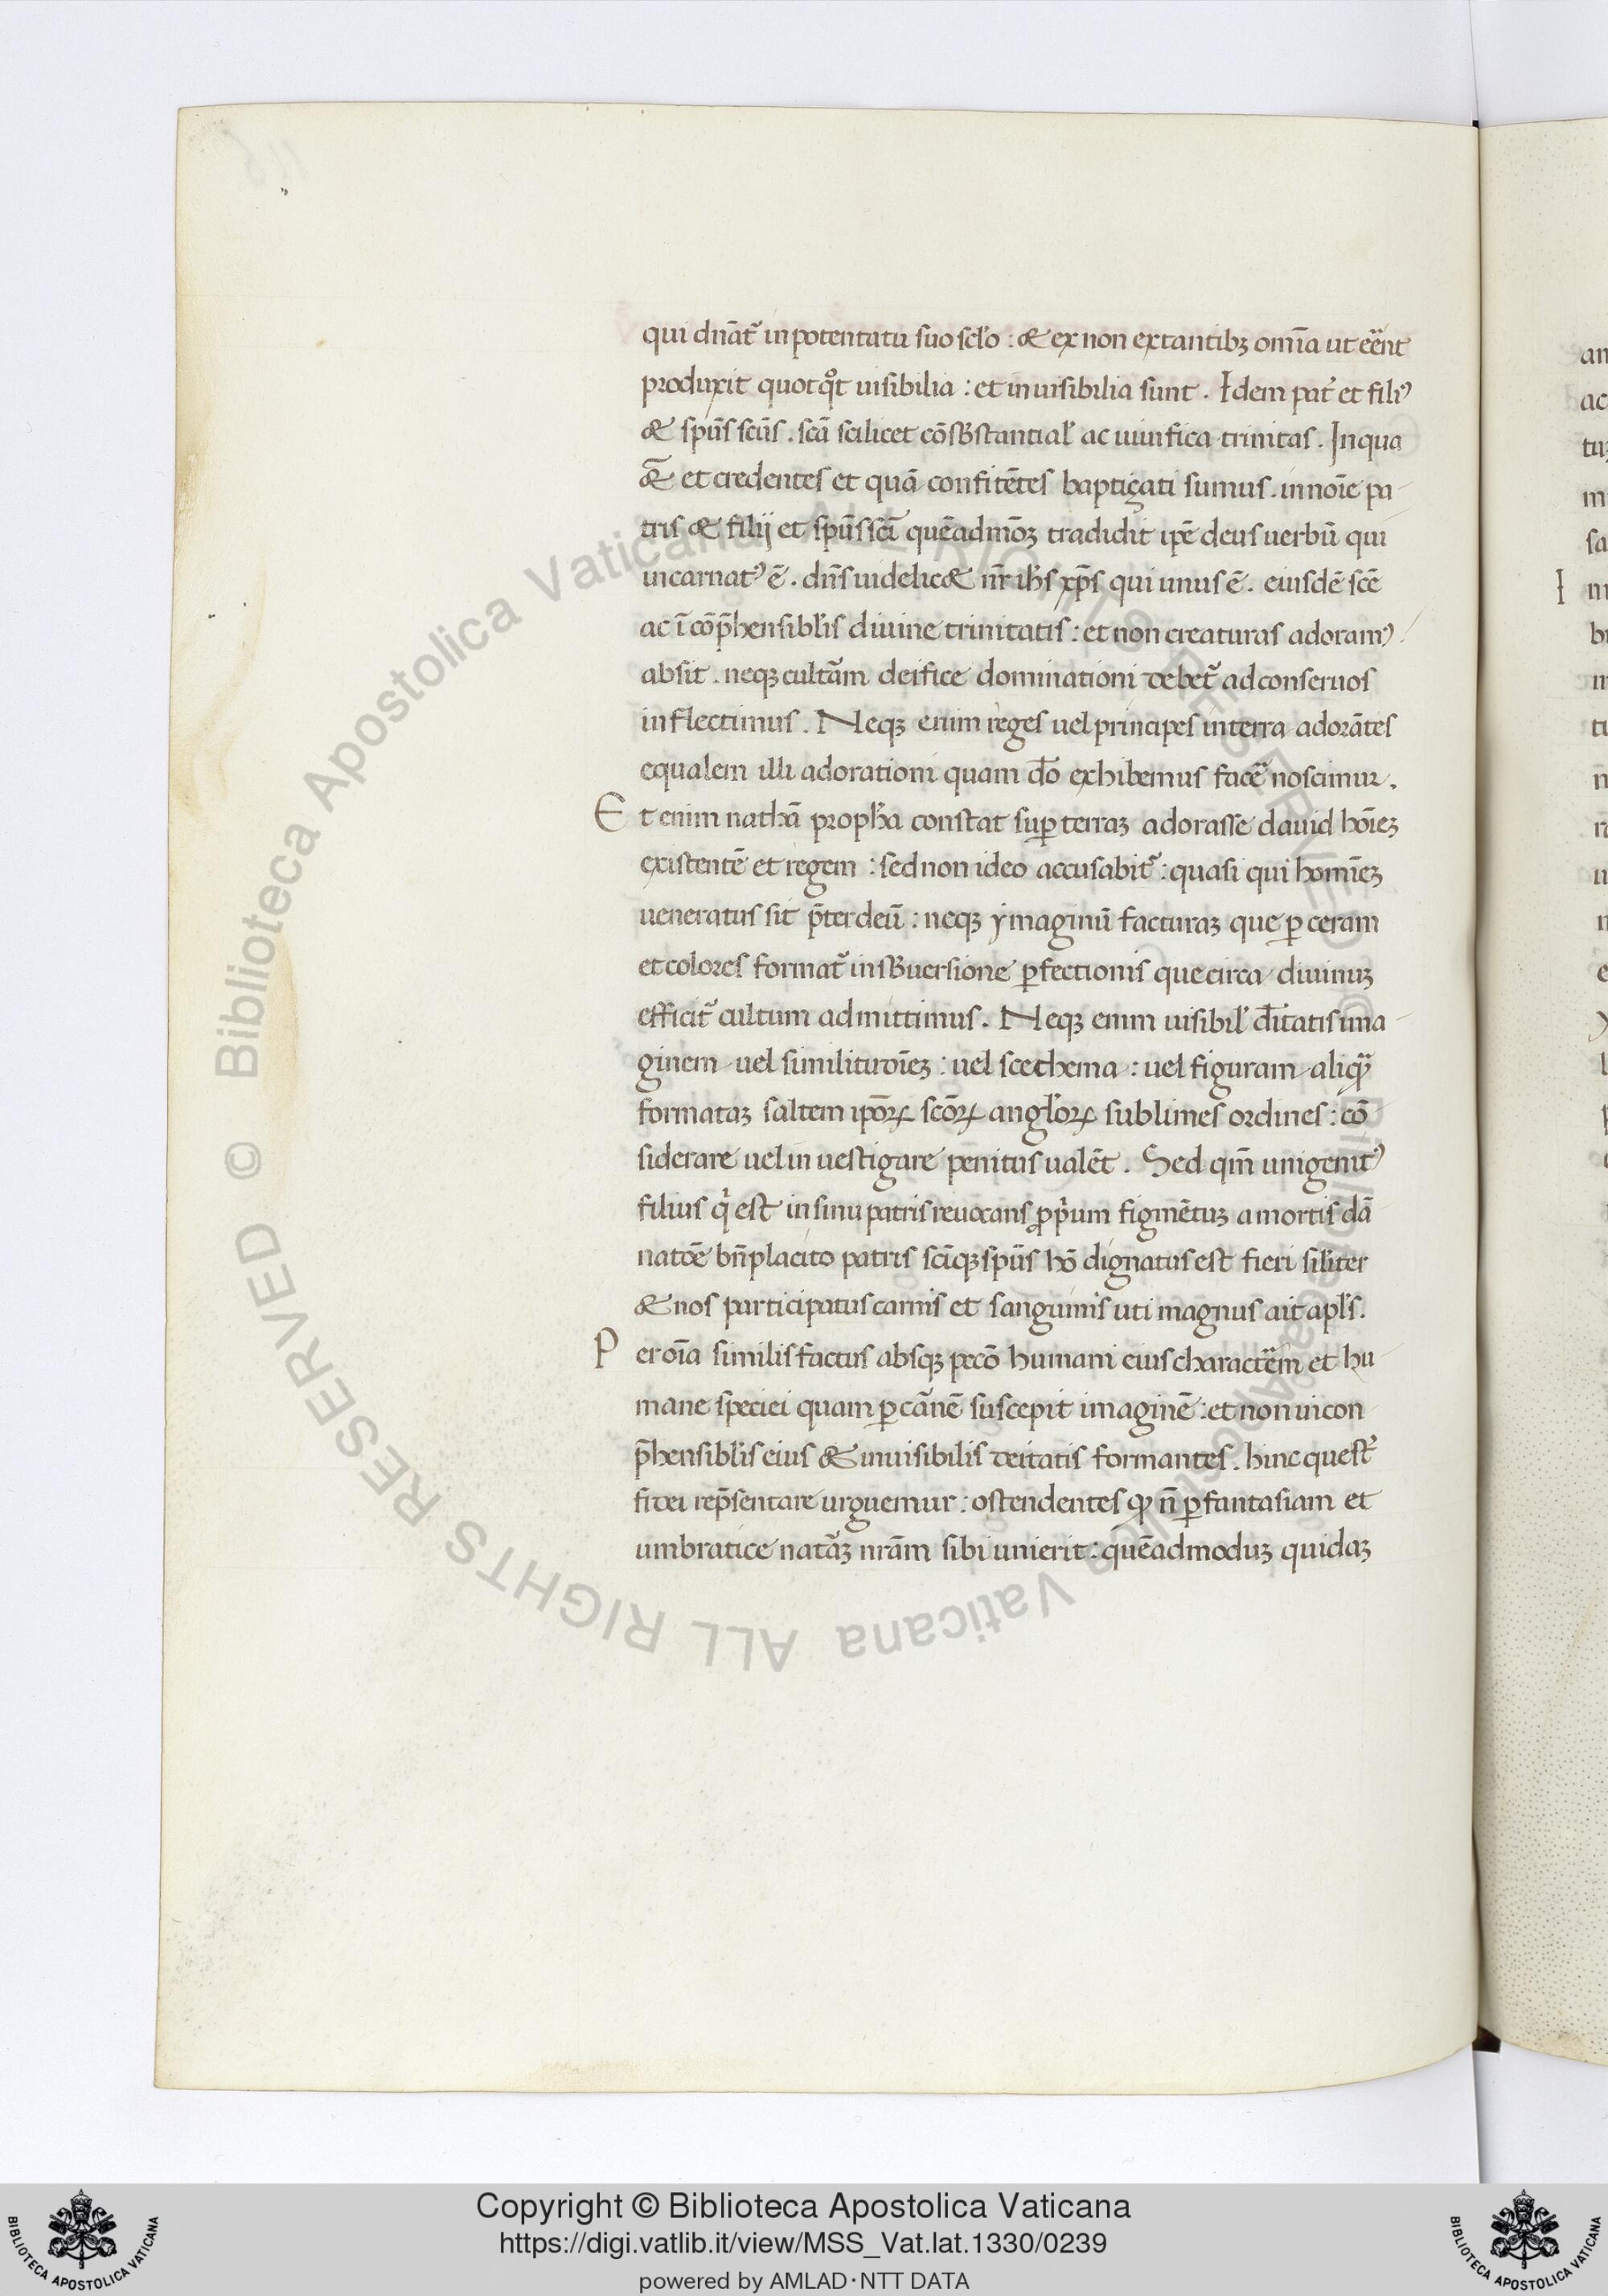 qui dn̄at᷑ in potentatu suo sclo : & ex non extantibꝫ om̄ia ut ee᷑nt
produxit quotqͦt uisibilia : et inuisibilia sunt . Idem pat᷑ et filiꝰ
& spūs scūs . scā scilicet cōsƀstantial̕ ac uiuifica trinitas . In qua
&̄ et credentes et quā confitētes baptiçati sumus . in noīe pa
tris & filij et spūs scī quēadmōꝫ tradidit ipē deus uerbū qui
incarnatꝰ ē . dn̄s uidelic& nr̄ ih̄s xp̄s qui unus ē . eiusdē scē
ac īcōp̄hensiblis diuine trinitatis : et non creaturas adoramꝰ
absit . neqꝫ cultā̄m deifice dominationi debet᷑ ad conseruos
inflectimus . Neqꝫ enim reges uel principes in terra adorātes
equalem illi adorationi quam do̅ exhibemus face᷑ noscimur .
Et enim nathā propħa constat suꝑ terraꝫ adorasse dauid hōīeꝫ
existentē et regem : sed non ideo accusabit᷑ : quasi qui homīeꝫ
ueneratus sit p̄ter deū : neqꝫ ymaginū facturaꝫ que ꝑ ceram
et colores format᷑ in sƀuersione ꝑfectionis que circa diuinuꝫ
efficit᷑ cultum admittimus . Neqꝫ enim uisibil̕ dītatis ima
ginem uel similitudīeꝫ : uel scethema : uel figuram aliqꝫ
formataꝫ saltem ipōꝝ scōꝝ angloꝝ sublimes ordines : cō
siderare uel inuestigare penitus ualēt . Sed qm̄ unigenitꝰ
filius qͥ est in sinu patris reuocans ꝓpͥum figmētuꝫ a mortis dā
natōe bn̄placito patris sciqꝫ spūs hō dignatus est fieri silīter
& nos participatus carnis et sanguinis uti magnus ait apl̄s .
Per oīa similis factus absqꝫ pccō humani eius characte᷑m et hu
mane speciei quam ꝑ cānē suscepit imaginē : et non incon
p̄hensiblis eius & inuisibilis deitatis formantes . hinc quest᷑
fidei rep̄sentare urguemur : ostendentes ꝙ n̄ ꝑ fantasiam et
umbratice natāꝫ nrām sibi unierit : quēadmoduꝫ quidaꝫ
Copyright © Biblioteca Apostolica Vaticana
https://digi.vatlib.it/view/MSS_Vat.lat.1330/0239
powered by AMLAD·NTT DATA